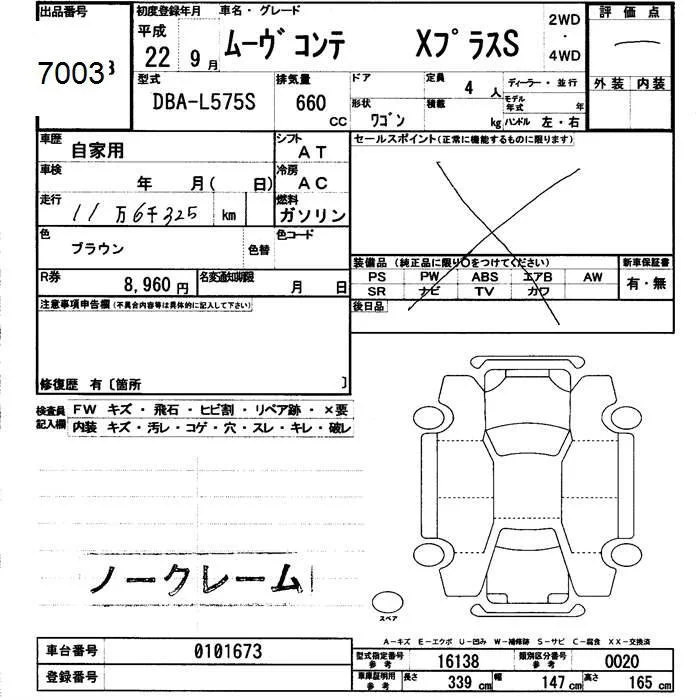 出品番号
70033
初度登録年月
平成
22 9月
車名・グレード
ムーヴ コンテ XプラスS
2WD
・
4WD
評価点
外装 内装
型式
DBA-L575S
排気量
660 CC
ドア
形状
ワゴン
定員
4 人
積載
kg
ディーラー・並行
モデル年式 年
ハンドル 左・右
車歴
自家用
シフト
AT
車検
年 月( 日)
冷房
AC
走行
11万6千325 km
燃料
ガソリン
色
ブラウン
色替
色コード
R券
8,960 円
名変通知期限
月 日
注意事項申告欄(不具合内容等は具体的に記入して下さい)
修復歴 有〔箇所 〕
セールスポイント(正常に機能するものに限ります)
装備品 (純正品に限り○をつけてください)
PS PW ABS エアB AW
SR ナビ TV カワ
新車保証書
有・無
後日品
検査員記入欄
FW キズ・飛石・ヒビ割・リペア跡・×要
内装 キズ・汚レ・コゲ・穴・スレ・キレ・破レ
ノークレーム
スペア
A-キズ E-エクボ U-凹み W-補修跡 S-サビ C-腐食 XX-交換済
車台番号
0101673
登録番号
型式指定番号
参考
16138
類別区分番号
参考
0020
車庫証明用
参考
長さ
339 cm
幅
147 cm
高さ
165 cm